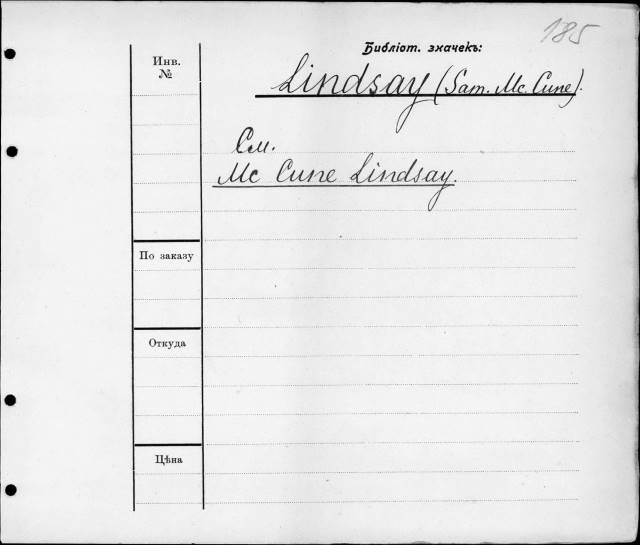 185
Библіот. значекъ:
Инв.
№
Lindsay (Sam. Mc. Cune).
См.
Mc Cune Lindsay.
По заказу
Откуда
Цѣна